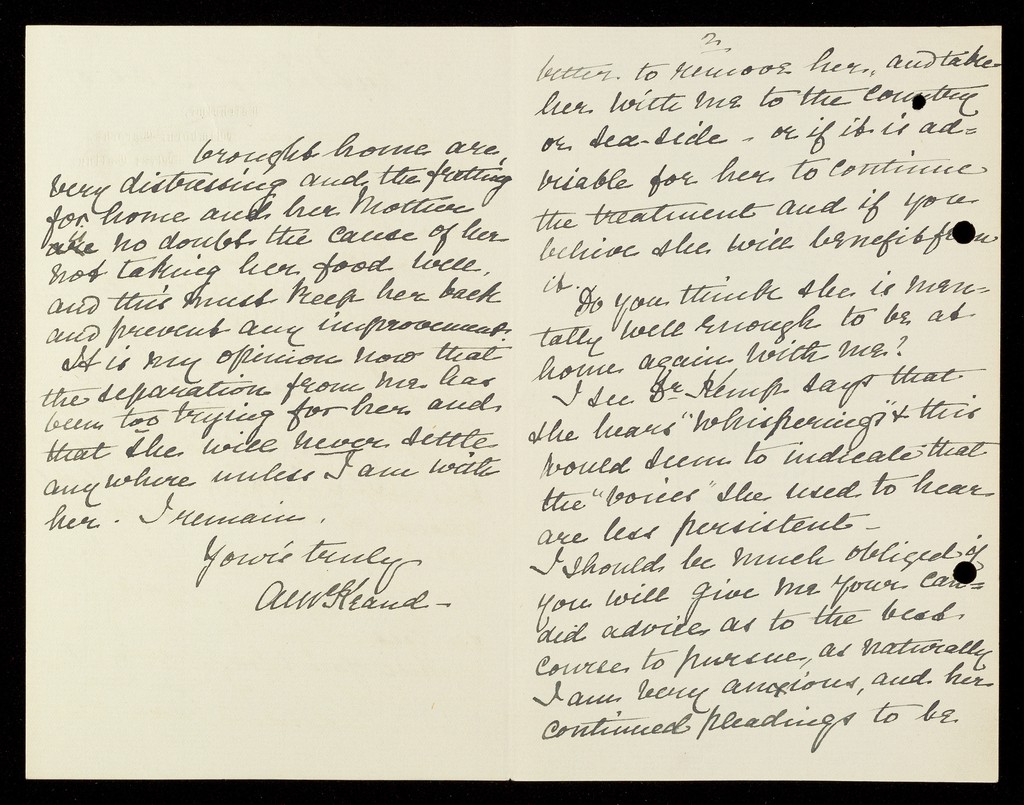 2
better to remove her, and take
her with me to the country
or sea-side – or if it is ad=
visable for her to continue
the treatment and if you
believe she will benefit from
it.
Do you think she is men-
tally well enough to be at
home again with me?
I see Dr Kemp says that
she hears "whisperings" & this
would seem to indicate that
the "voices" she used to hear
are less persistent –
I should be much obliged if
you will give me your can=
did advice as to the best
course to pursue, as naturally
I am very anxious, and her
continued pleadings to be
brought home are
very distressing and the fretting
for home and her Mother
are no doubt the cause of her
not taking her food well,
and this must keep her back
and prevent any improvement.
It is my opinion now that
the separation from me has
been too trying for her and
that she will never settle
anywhere unless I am with
her. I remain,
Yours truly
McKeand –